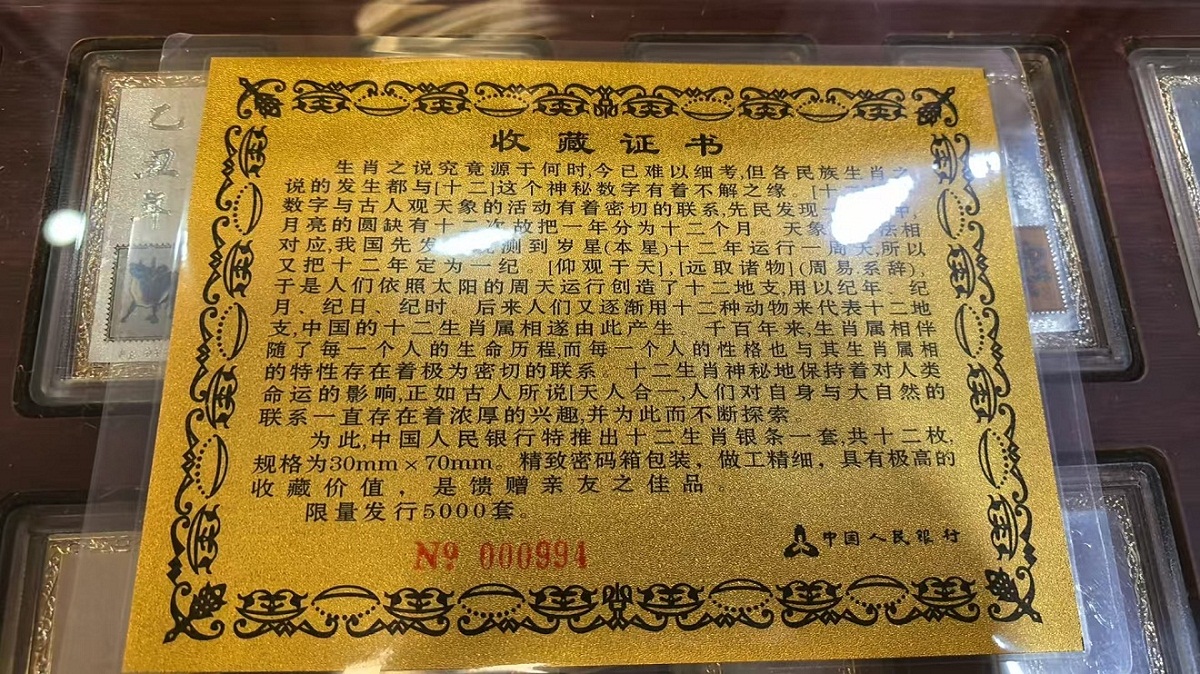 收藏证书
生肖之说究竟源于何时,今已难以细考,但各民族生肖之
说的发生都与[十二]这个神秘数字有着不解之缘。[十
数字与古人观天象的活动有着密切的联系,先民发现一
月亮的圆缺有十二次故把一年分为十二个月。天象 法相
对应,我国先发 测到岁星(本星)十二年运行一周天,所以
又把十二年定为一纪。[仰观于天],[远取诸物](周易系辞),
于是人们依照太阳的周天运行创造了十二地支,用以纪年、纪
月、纪日、纪时。后来人们又逐渐用十二种动物来代表十二地
支,中国的十二生肖属相遂由此产生。千百年来,生肖属相伴
随了每一个人的生命历程,而每一个人的性格也与其生肖属相
的特性存在着极为密切的联系。十二生肖神秘地保持着对人类
命运的影响,正如古人所说[天人合一,人们对自身与大自然的
联系一直存在着浓厚的兴趣,并为此而不断探索。
为此,中国人民银行特推出十二生肖银条一套,共十二枚,
规格为30mm×70mm。精致密码箱包装，做工精细，具有极高的
收藏价值，是馈赠亲友之佳品。
限量发行5000套。
中国人民银行
Nº 000994
乙丑年